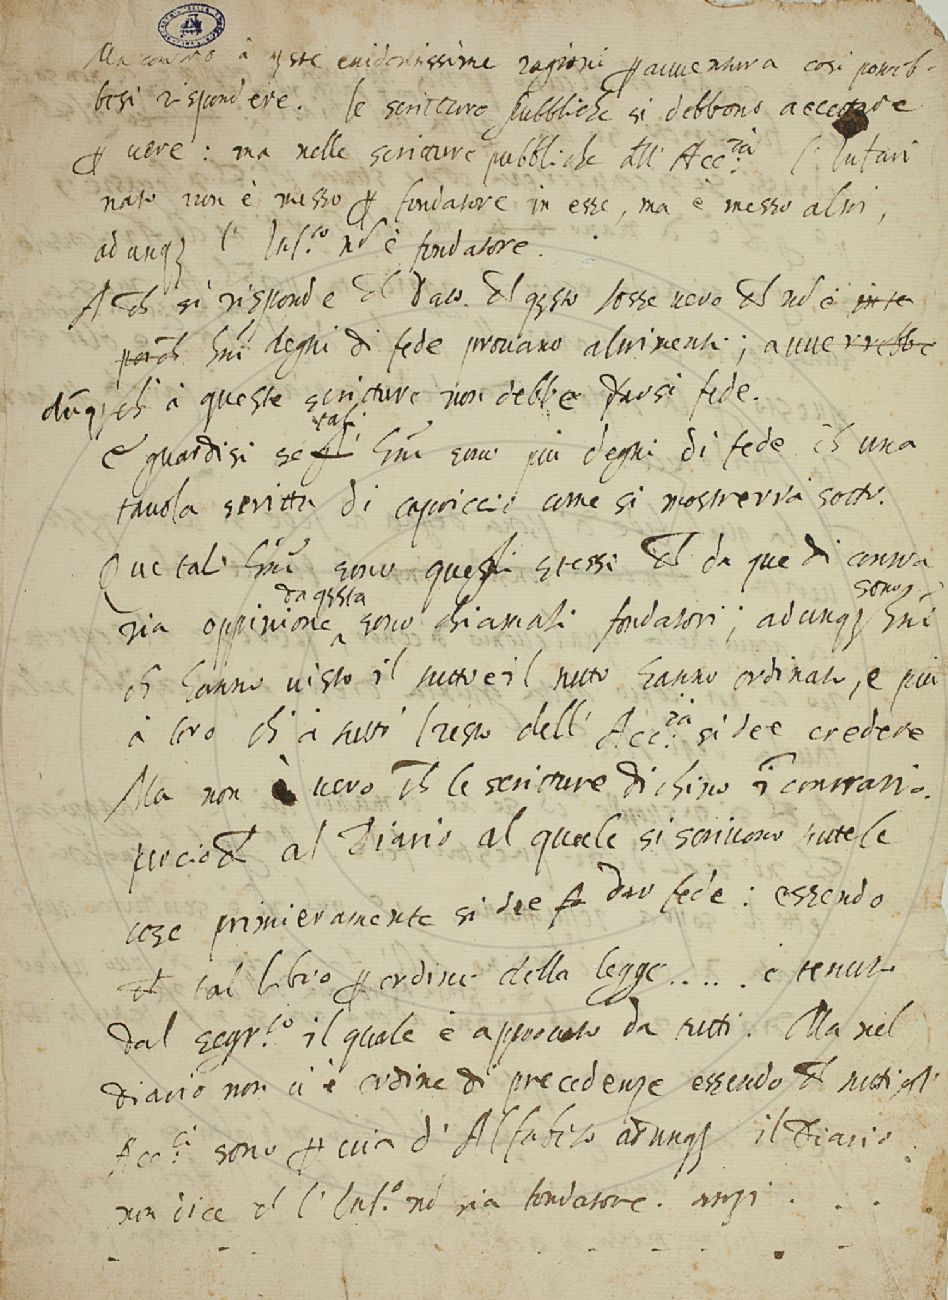 Ma contro à q̃ste euidentissime ragioni ꝑauuentura cosi potreb-
besi rispondere. le scritture pubbliche si debbono accettare
ꝑ uere: ma nelle scritture pubbliche dll' Acc.ia l' Infari
nato non è messo ꝑ fondatore in esse, ma è messo altri,
adunqꝫ l' Inf.to nō è fondatore.
A ch si risponde ch dato ch q̃sto fosse uero ch nō è
huōi degni di fede prouano altrimenti; auuerrebbe
dūqꝫ ch à queste scritture non debbe darsi fede.
tali
E guardisi se huōi sono piu degni di fede ch una
tauola scritta di capriccio come si mostrerrà sotto.
Que tali huōi sono questi stessi ch da que di contra
da q̃sta sono
ria oppinione sono chiamati fondatori; adunqꝫ huōi
ch hanno uisto il tutto e il tutto hanno ordinato, e piu
à loro ch à tutti l resto dell' Acc.ia si dee credere
Ma non è uero ch le scritture dichino ī contrario.
percioch al Diario al quale si scriuono tutte le
cose primieramente si dee dar fede: essendo
ch tal libro ꝑ ordine della legge..... è tenuto
dal segr.to il quale è approuato da tutti. Ma nel
diario non ui è ordine di precedenze essendo ch tutti gli
Acc.ci sono ꝑ uia d' Alfabeto adunqꝫ il Diario
non dice ch l' Inf.o nō sia fondatore. anzi . . .